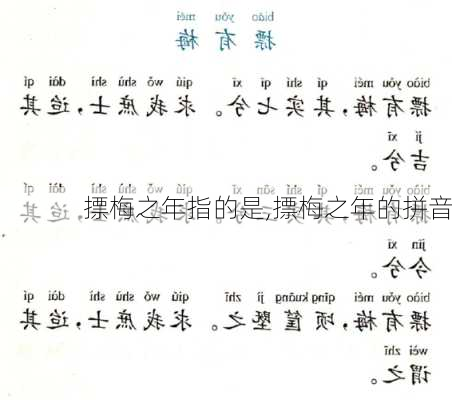 biāo yǒu méi
摽有梅
biāo yǒu méi qí shí qī xī qiú wǒ shù shì dài qí
摽有梅，其实七兮。求我庶士，迨其
jí xī
吉兮。
biāo yǒu méi qí shí sān xī qiú wǒ shù shì dài qí
摽有梅，其实三兮。求我庶士，迨其
摽梅之年指的是,摽梅之年的拼音
jīn xī
今兮。
biāo yǒu méi qǐng kuāng jì zhī qiú wǒ shù shì dài qí
摽有梅，顷筐塈之。求我庶士，迨其
wèi zhī
谓之。